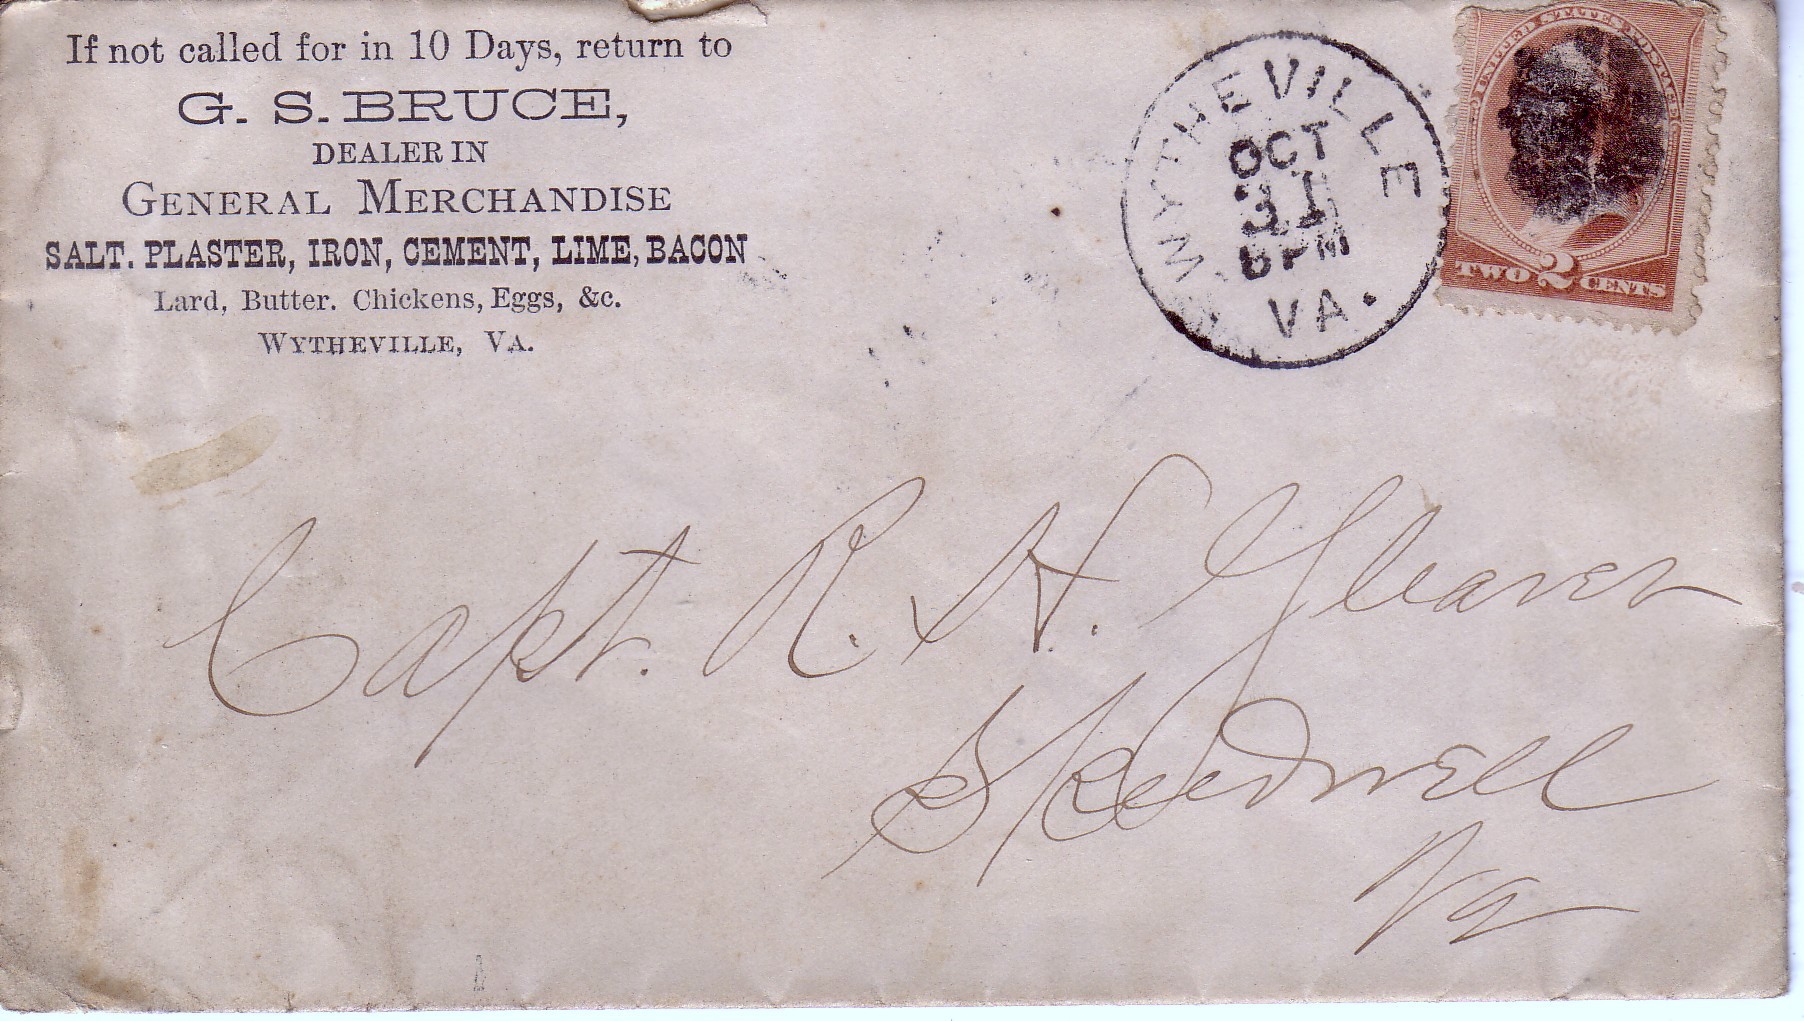 If not called for in 10 Days, return to
G. S. BRUCE,
DEALER IN
GENERAL MERCHANDISE
SALT. PLASTER, IRON, CEMENT, LIME, BACON
Lard, Butter. Chickens, Eggs, &c.
WYTHEVILLE, VA.
WYTHEVILLE
OCT
31
PM
VA.
UNITED STATES POSTAGE
TWO 2 CENTS
Capt. R. H. Gleaves
Speedwell
Va